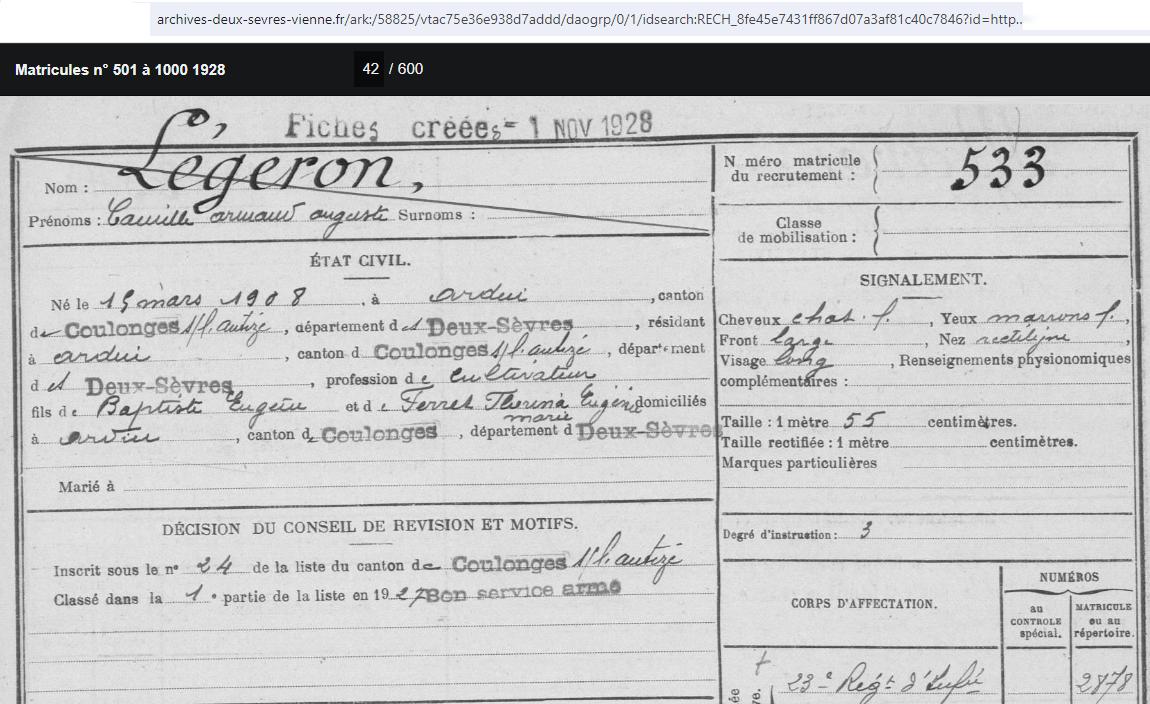 archives-deux-sevres-vienne.fr/ark:/58825/vtac75e36e938d7addd/daogrp/0/1/idsearch:RECH_8fe45e7431ff867d07a3af81c40c7846?id=http..
Matricules n° 501 à 1000 1928
42 / 600
Fiches créées - 1 NOV 1928
Nom : Légeron,
Prénoms : Camille armand auguste Surnoms :
N méro matricule
du recrutement : 533
Classe
de mobilisation :
ÉTAT CIVIL.
Né le 15 mars 1908, à ardin, canton
de Coulonges s/l. autize, département des Deux-Sèvres, résidant
à ardin, canton d Coulonges s/l. autize, département
des Deux-Sèvres, profession de cultivateur
fils de Baptiste Eugène et de Ferret Marie Eugénie domiciliés
marie
à ardin, canton de Coulonges, département d Deux-Sèvres
Marié à
SIGNALEMENT.
Cheveux chat. f., Yeux marrons f.,
Front large, Nez rectiligne,
Visage long, Renseignements physionomiques
complémentaires :
Taille : 1 mètre 55 centimètres.
Taille rectifiée : 1 mètre centimètres.
Marques particulières
Degré d'instruction : 3
DÉCISION DU CONSEIL DE REVISION ET MOTIFS.
Inscrit sous le n° 24 de la liste du canton de Coulonges s/l. autize
Classé dans la 1e partie de la liste en 1927 Bon service armé
CORPS D'AFFECTATION.
NUMÉROS
au
CONTROLE
spécial.
MATRICULE
ou au
répertoire.
23e Régt d'Infie 2878